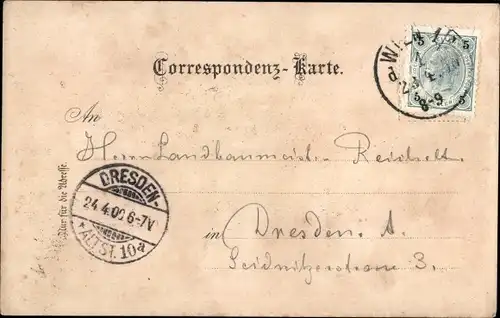 Correspondenz-Karte.
5 5
WIEN
8-9
An
Herrn Landbaumeister Reichelt
Nur für die Adresse.
DRESDEN-
24.4.00.6-7V
ALTST. 10a
in Dresden. A.
Seidnitzerstrasse 3.